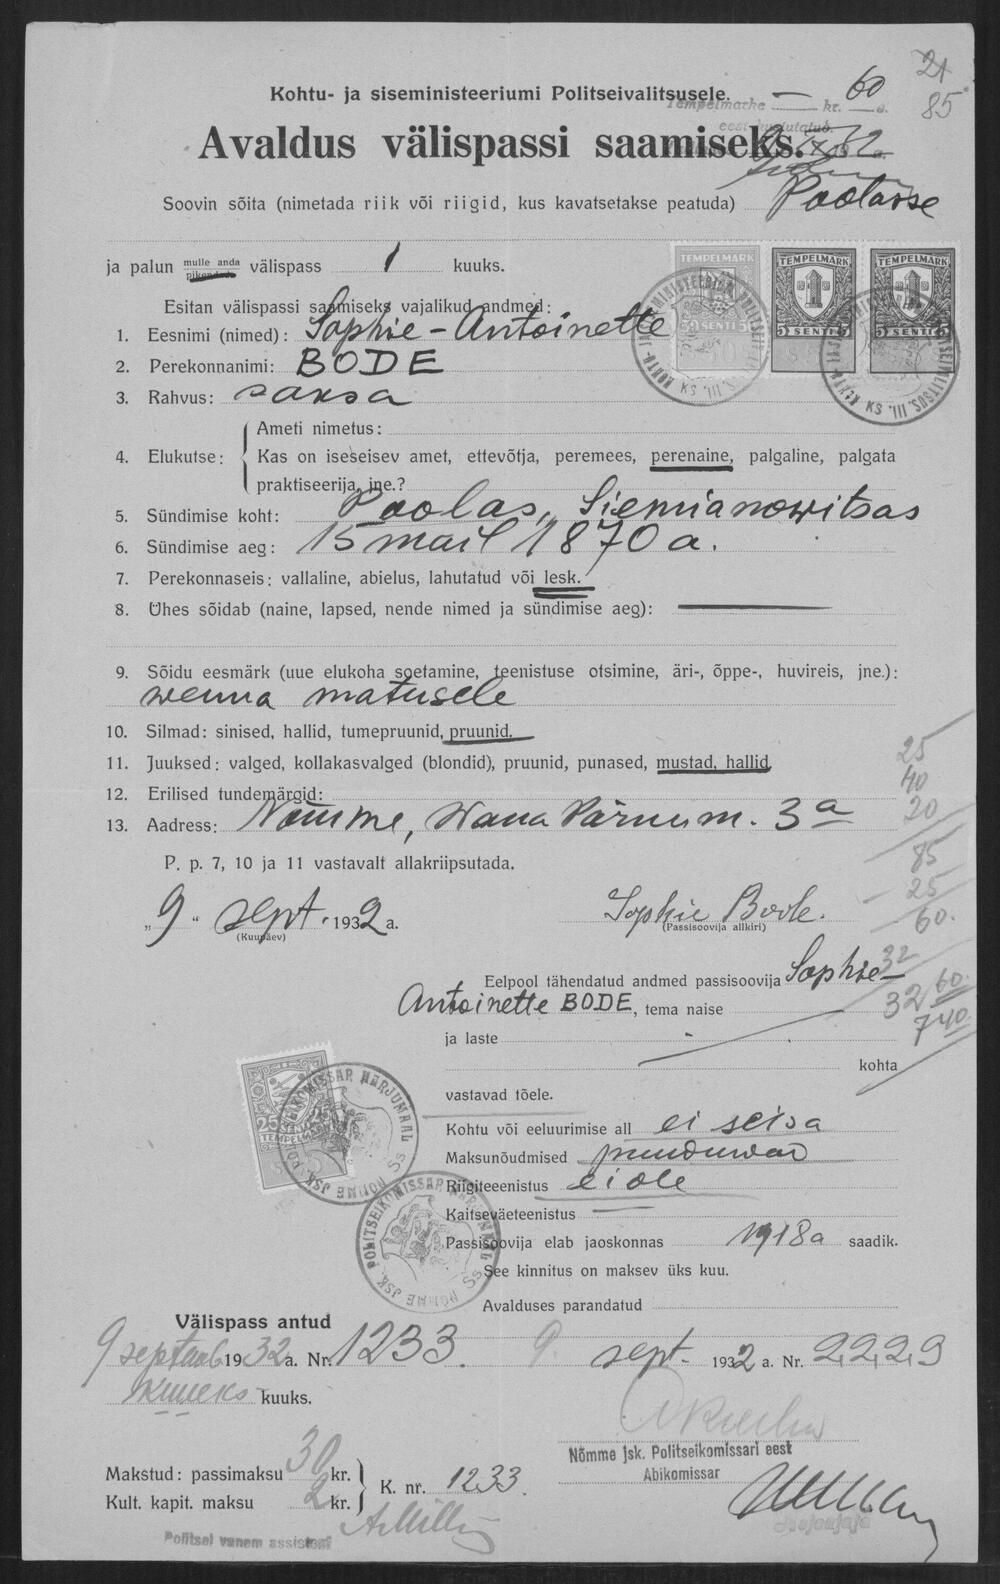 21
85
Kohtu- ja siseministeeriumi Politseivalitsusele.
Tempelmarke — kr. 60 s.
eest kustutatud.
Avaldus välispassi saamiseks.
Soovin sõita (nimetada riik või riigid, kus kavatsetakse peatuda) Poolasse
ja palun mulle anda pikendada välispass 1 kuuks.
Esitan välispassi saamiseks vajalikud andmed:
1. Eesnimi (nimed): Sophie-Antoinette
2. Perekonnanimi: BODE
3. Rahvus: saksa
TEMPELMARK TEMPELMARK TEMPELMARK
5 SENTI 5 5 SENTI 5
4. Elukutse: Ameti nimetus:
Kas on iseseisev amet, ettevõtja, peremees, perenaine, palgaline, palgata
praktiseerija, jne.?
5. Sündimise koht: Poolas, Siemianowitsas
6. Sündimise aeg: 15 mail 1870 a.
7. Perekonnaseis: vallaline, abielus, lahutatud või lesk.
8. Ühes sõidab (naine, lapsed, nende nimed ja sündimise aeg): —
9. Sõidu eesmärk (uue elukoha soetamine, teenistuse otsimine, äri-, õppe-, huvireis, jne.):
wenna matusele
10. Silmad: sinised, hallid, tumepruunid, pruunid.
11. Juuksed: valged, kollakasvalged (blondid), pruunid, punased, mustad, hallid
12. Erilised tundemärgid:
13. Aadress: Nõmme, Wana Pärnu m. 3a
25
40
20
85
25
60.
P. p. 7, 10 ja 11 vastavalt allakriipsutada.
„9“ sept. 1932 a.
(Kuupäev)
Sophie Bode.
(Passisoovija allkiri)
Eelpool tähendatud andmed passisoovija Sophie-
Antoinette BODE, tema naise
ja laste
kohta
32
32 60
740
vastavad tõele.
25
TEMPELMARK
JSK. POLITSEIKOMISSAR HARJUMAAL
NÕMME
Kohtu või eeluurimise all ei seisa
Maksunõudmised puuduwad
Riigiteeenistus ei ole
Kaitseväeteenistus —
Passisoovija elab jaoskonnas 1918 a saadik.
See kinnitus on maksev üks kuu.
JSK. POLITSEIKOMISSAR HARJUMAAL
NÕMME
Avalduses parandatud
Välispass antud
9 septemb. 1932 a. Nr. 1233.
kuueks kuuks.
9. sept. 1932 a. Nr. 2229
Nõmme jsk. Politseikomissari eest
Abikomissar
Makstud: passimaksu 30 kr.
Kult. kapit. maksu 2 kr.
K. nr. 1233.
Politsei vanem assistent
Asjaajaja